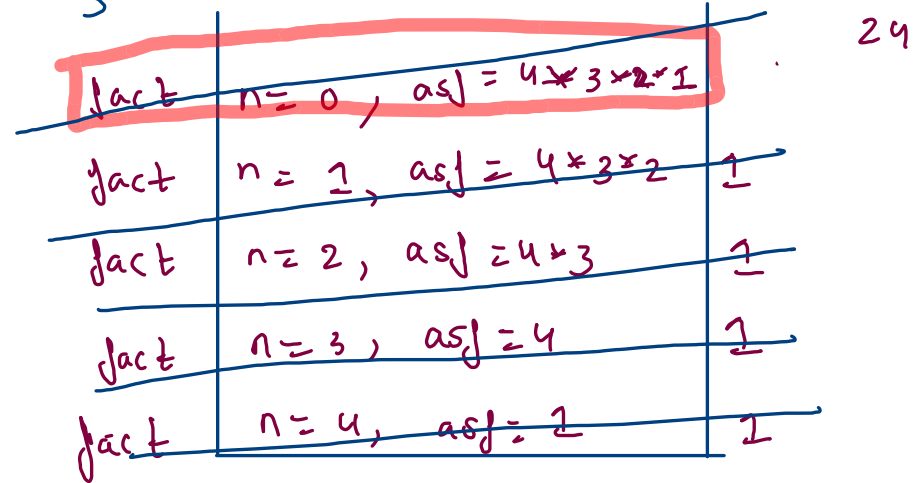 24
fact n = 0, asf = 4*3*2*1
fact n = 1, asf = 4*3*2 1
fact n = 2, asf = 4*3 1
fact n = 3, asf = 4 1
fact n = 4, asf = 1 1